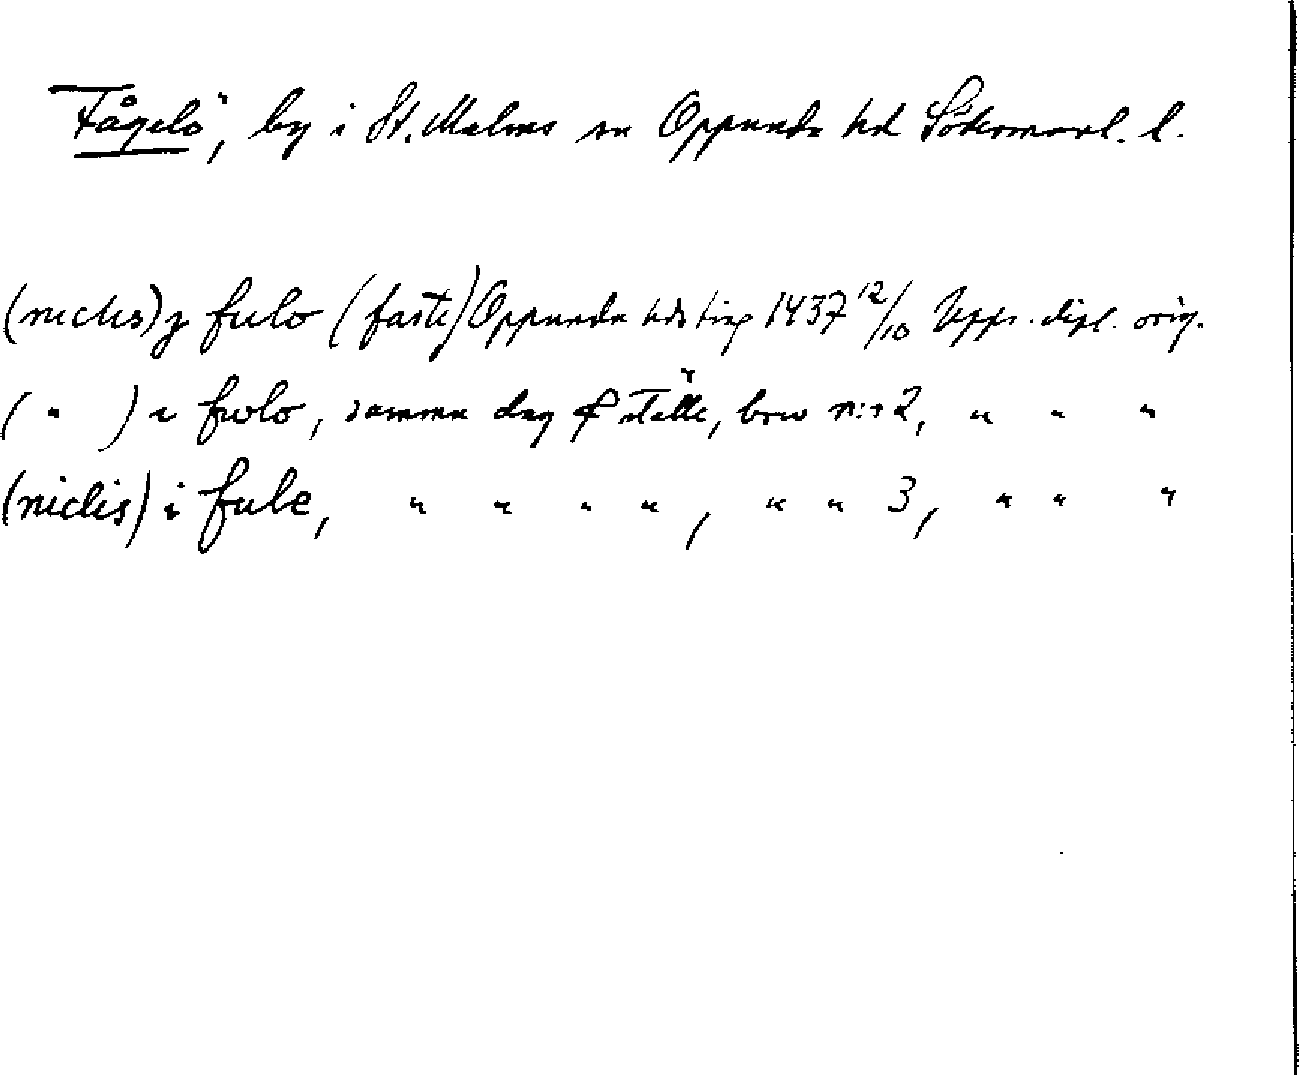 Fågelö, by i St. Malms sn Oppunda hd Södermanl. l.
(neclis) j fulo (faste) Oppunda hds ting 1437 12/10 Upps. dipl. orig.
( " ) i fwlo, samma dag & ställe, brev n:r 2, " " "
(niclis) i fule, " " " " , " " 3, " " "